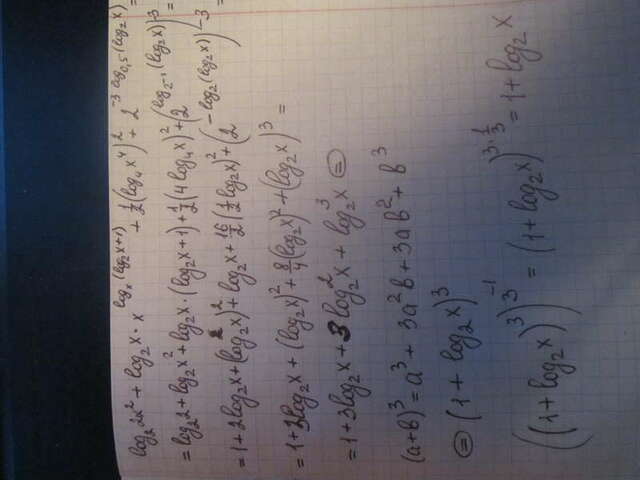 log₂2x² + log₂x · x^(logₓ(log₂x+1)) + 1/2(log₄x⁴)² + 2^(-3 log₀,₅(log₂x)) =
= log₂2 + log₂x² + log₂x · (log₂x+1) + 1/2(4log₄x)² + (2^(log₂-¹(log₂x)))-³ =
= 1 + 2log₂x + (log₂x)² + log₂x + 16/2(1/2log₂x)² + (2^(-log₂(log₂x)))-³ =
= 1 + 3log₂x + (log₂x)² + 8/4(log₂x)² + (log₂x)³ =
= 1 + 3log₂x + 3log₂²x + log₂³x ⊜
(a+b)³ = a³ + 3a²b + 3ab² + b³
⊜ (1 + log₂x)³
((1 + log₂x)³)^(3⁻¹) = (1 + log₂x)^(3·1/3) = 1 + log₂x